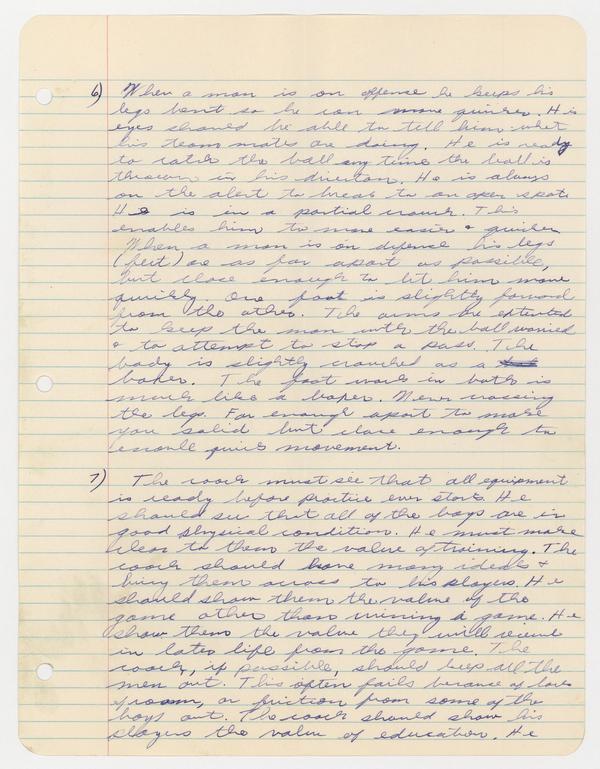 6) When a man is on offense he keeps his
legs bent so he can move quicker. His
eyes should be able to tell him what
his team mates are doing. He is ready
to catch the ball any time the ball is
thrown in his direction. He is always
on the alert to break to an open spot.
He is in a partial crouch. This
enables him to move easier & quicker
When a man is on defense his legs
(feet) are as far apart as possible,
but close enough to let him move
quickly. One foot is slightly forward
from the other. The arms are extended
to keep the man with the ball worried
& to attempt to stop a pass. The
body is slightly crouched as a
boxer. The foot work in both is
much like a boxer. Never crossing
the legs. Far enough apart to make
you solid but close enough to
enable quick movement.
7) The coach must see that all equipment
is ready before practice ever starts. He
should see that all of the boys are in
good physical condition. He must make
clear to them the value of training. The
coach should have many ideals &
bring them across to his players. He
should show them the value of the
game other than winning a game. He
show them the value they will receive
in later life from the game. The
coach, if possible, should keep all the
men out. This often fails because of lack
of room, or friction from some of the
boys out. The coach should show his
players the value of education. He